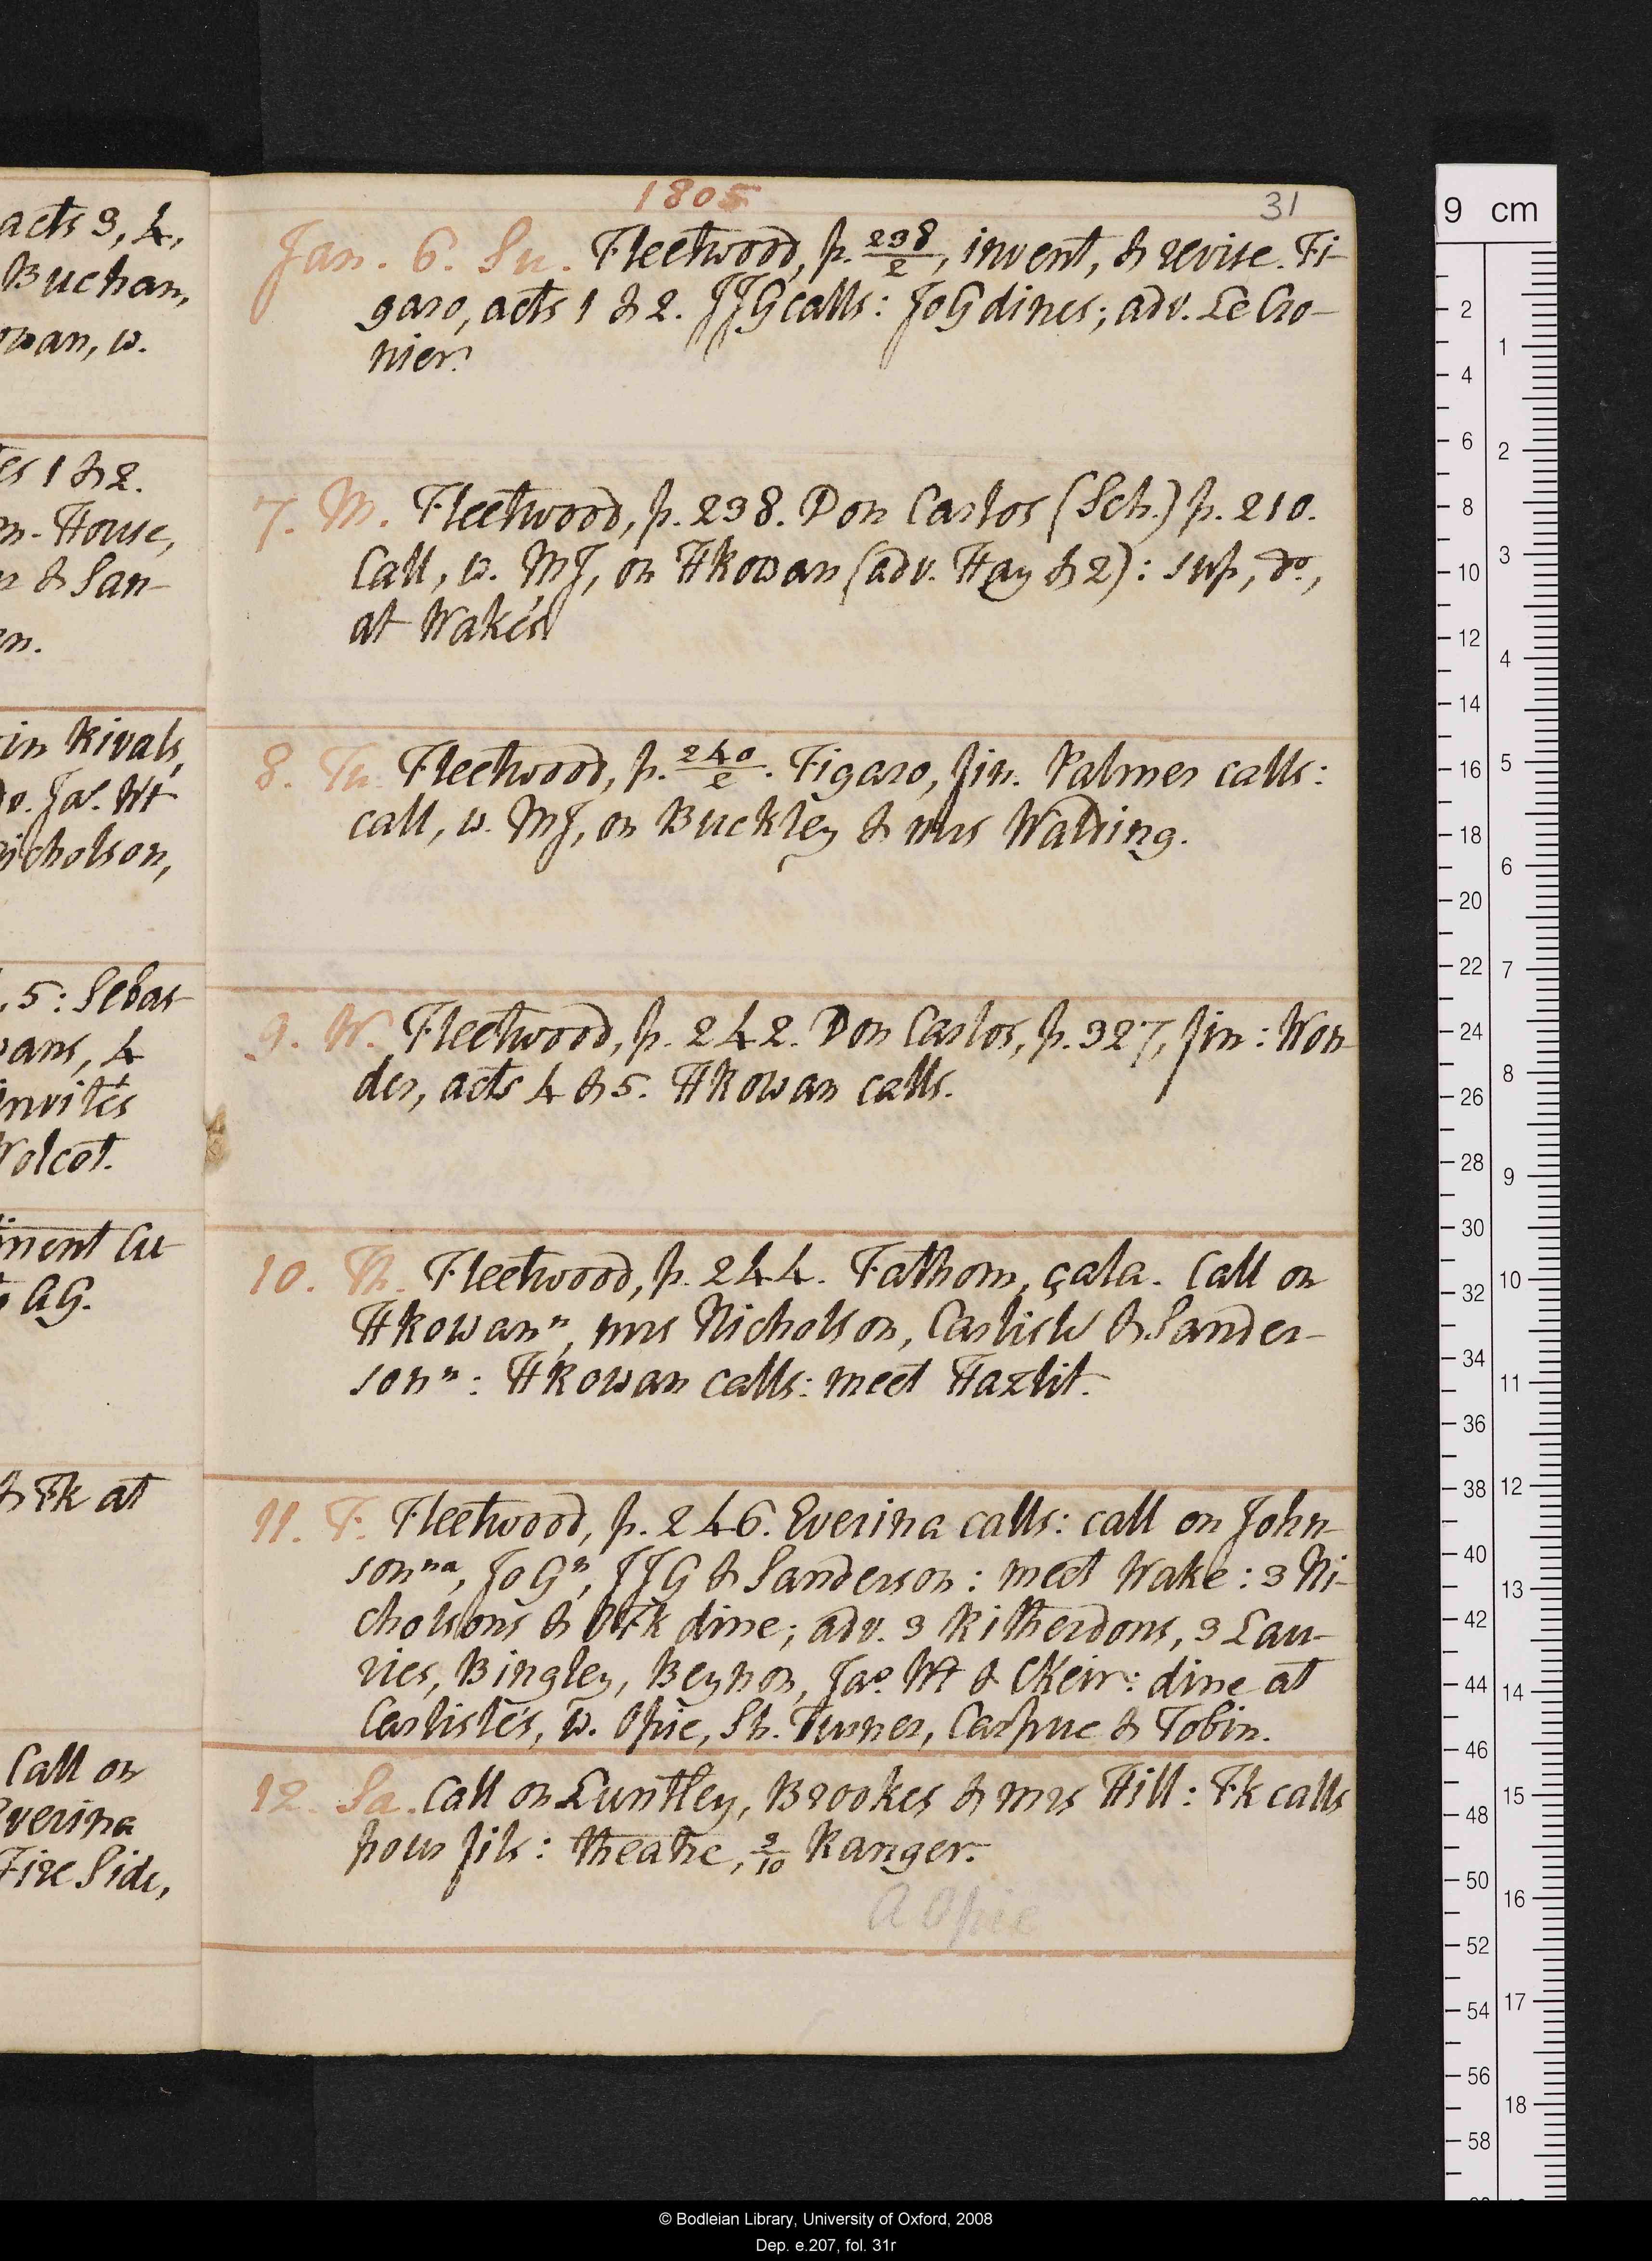 acts 3, 4,
Buchan,
owan, w.
es 1 & 2.
m-House,
& San-
n.
in Rivals,
Jas. Wt
Nicholson,
, 5: Sebas-
ans, 4
invités
Wolcot.
ment Cu-
AG.
& Fk at
Call on
Everina
Fire Side,
1805
31
Jan. 6. Su. Fleetwood, p. 238/2, invent, & revise. Fi-
garo, acts 1 & 2. JJG calls: JoG dines; adv. Le Gro-
nier.
7. M. Fleetwood, p. 238. Don Carlos (Sch.) p. 210.
Call, w. MJ, on HRowan (adv. Hay & 2): sup, do.,
at Wake's
8. Tu. Fleetwood, p. 240/2. Figaro, fin. Palmer calls:
call, w. MJ, on Buckley & mrs Watring.
9. W. Fleetwood, p. 242. Don Carlos, p. 327, fin: Won-
der, acts 4 & 5. HRowan calls.
10. Th. Fleetwood, p. 244. Fathom, çala. Call on
HRowanⁿ, mrs Nicholson, Carlisle & Sander-
sonⁿ: HRowan calls: meet Hazlit.
11. F. Fleetwood, p. 246. Everina calls: call on John-
sonⁿᵃ, JoGⁿ, JJG & Sanderson: meet Wake: 3 Ni-
cholsons & Fk dine; adv. 3 Kitherdons, 3 Lau-
ries, Bingley, Beynon, Jas. Wt & CKeir: dine at
Carlisle's, w. Opie, Sh. Turner, Carpue & Tobin.
12. Sa. Call on Luntley, Brookes & mrs Hill: Fk calls
pour fils: theatre, 3/10 Ranger.
A Opie
9 cm
2
4
6
8
10
12
14
16
18
20
22
24
26
28
30
32
34
36
38
40
42
44
46
48
50
52
54
56
58
1
2
3
4
5
6
7
8
9
10
11
12
13
14
15
16
17
18
© Bodleian Library, University of Oxford, 2008
Dep. e.207, fol. 31r